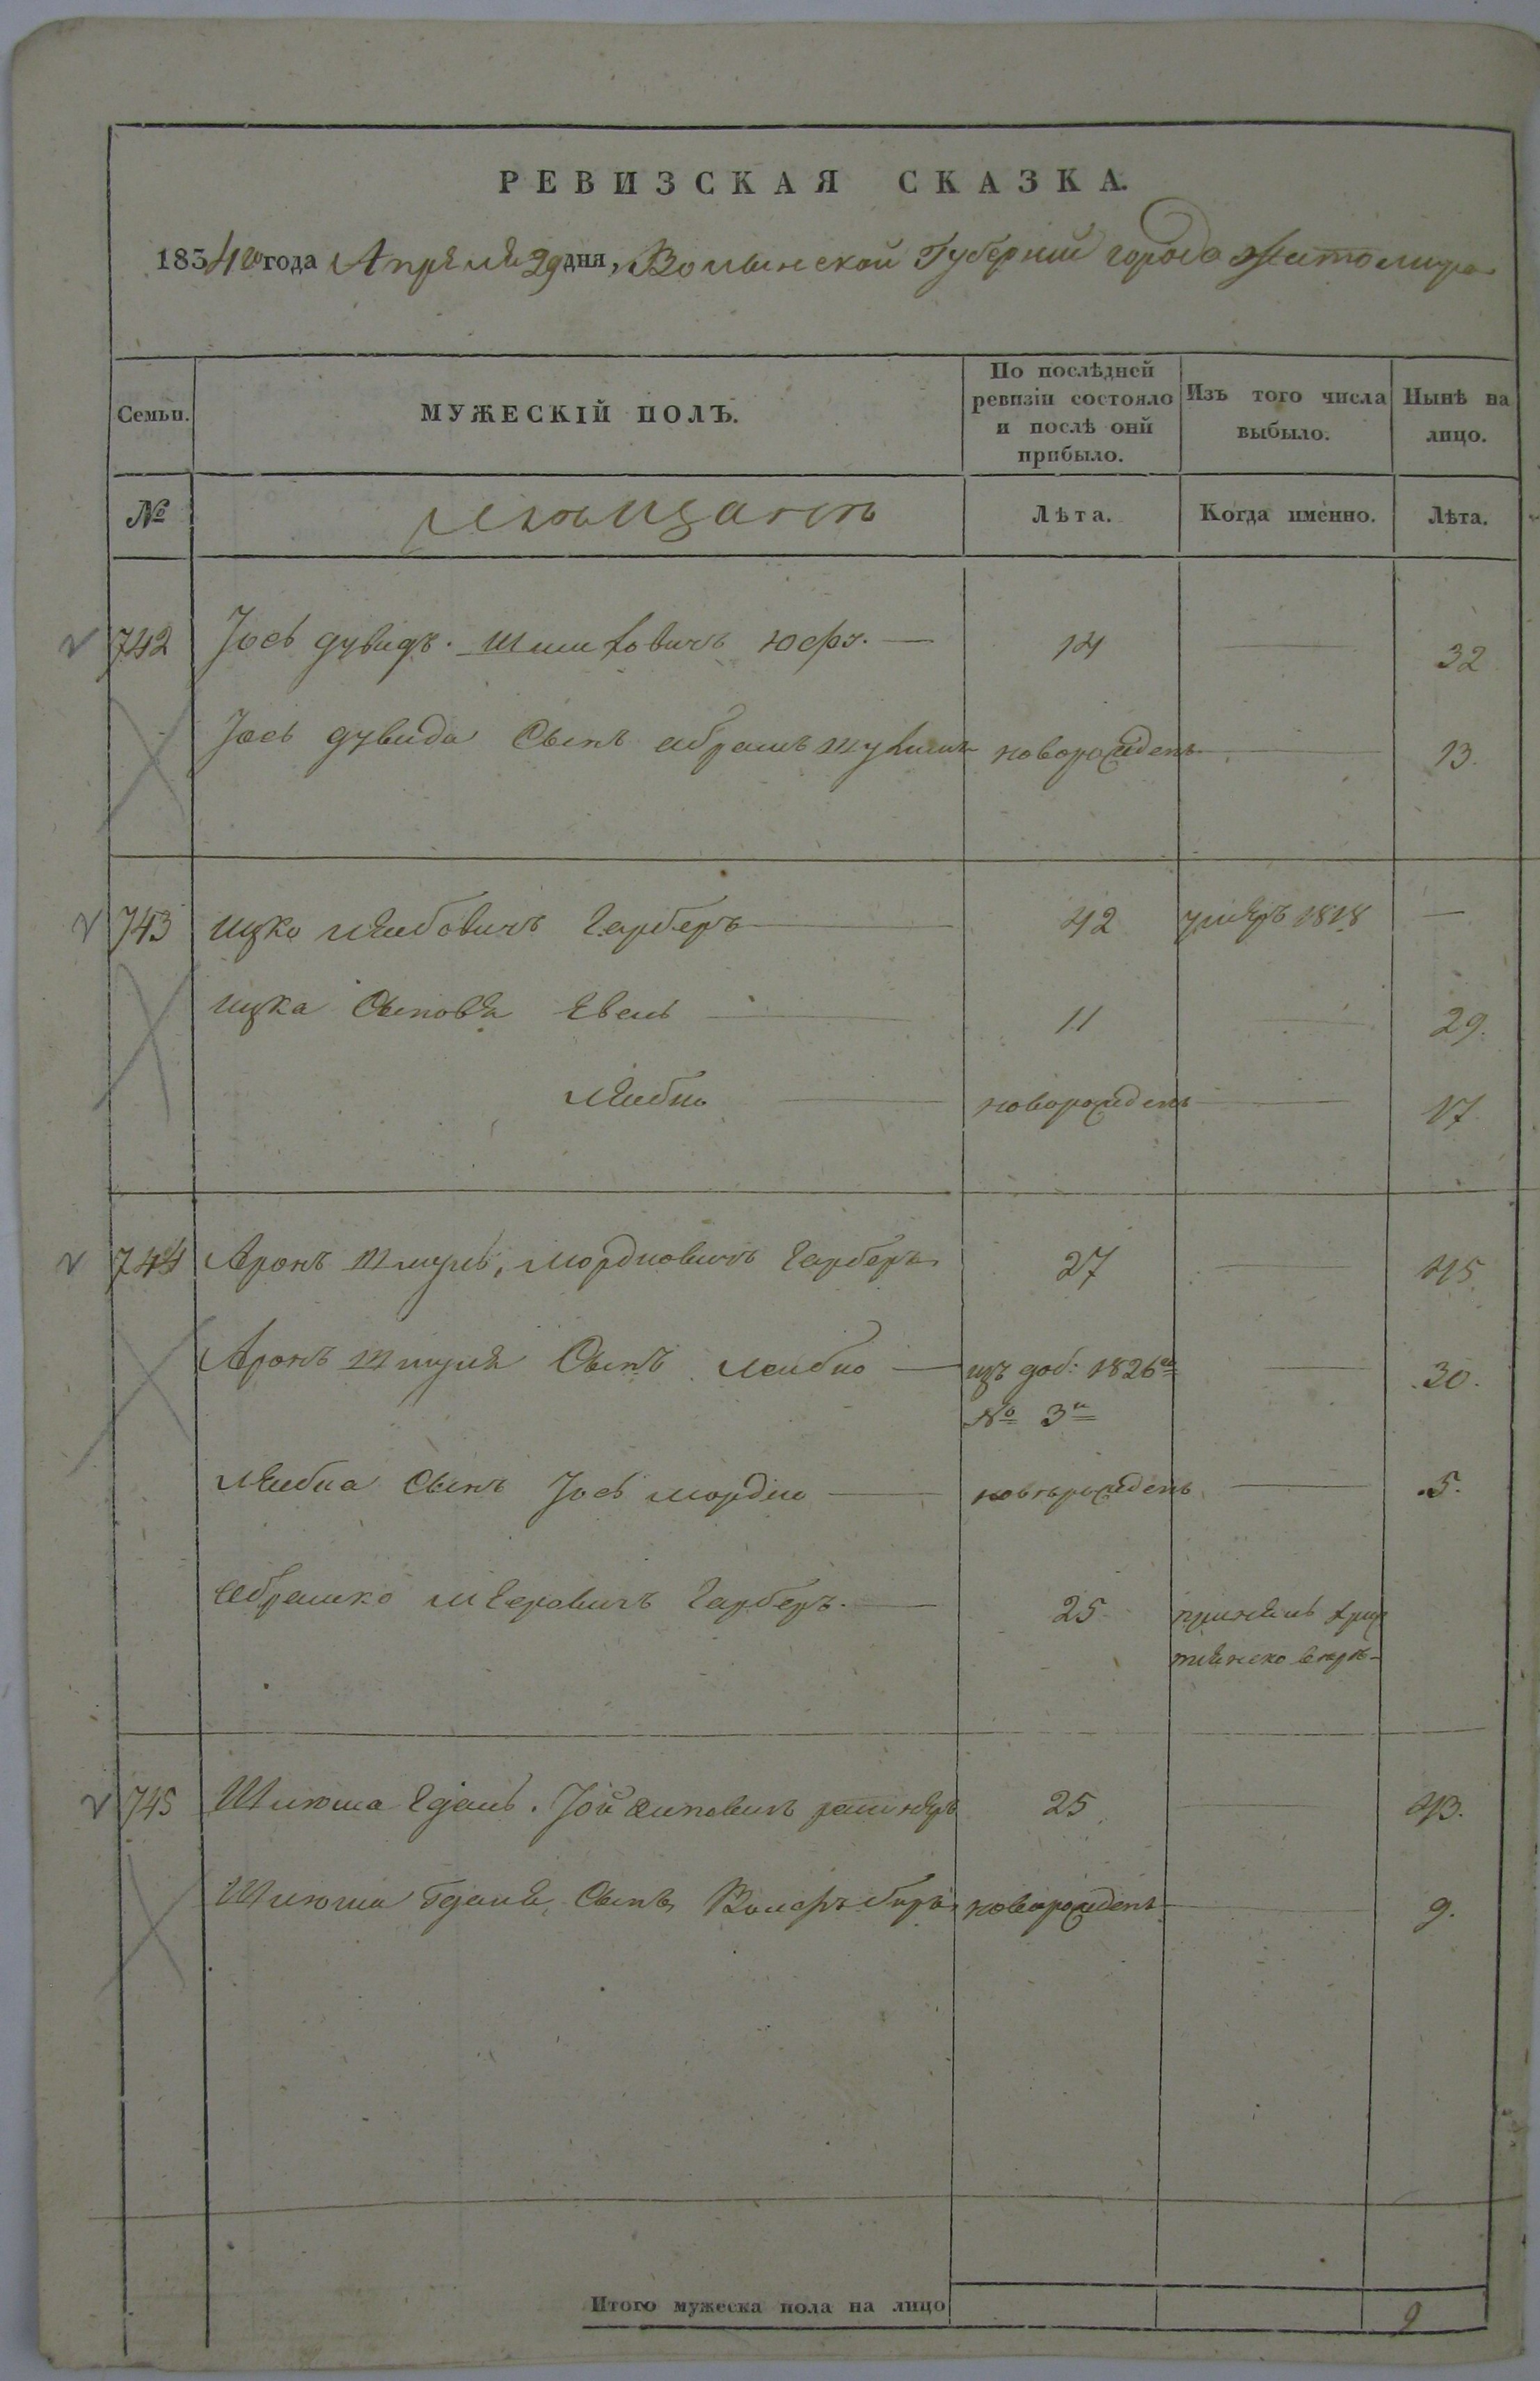 РЕВИЗСКАЯ СКАЗКА.
1834го года Апреля 29 дня, Волынской Губернии города Житомира
Семьи.
МУЖЕСКІЙ ПОЛЪ.
По послѣдней ревизіи состояло и послѣ оній прибыло.
Изъ того числа выбыло.
Нынѣ на лицо.
№
Мѣщанъ
Лѣта.
Когда именно.
Лѣта.
742 Іось дувидъ. 14 — 32
Іось дувида Сынъ абрамъ новорожденъ — 13.
743 ицко Лейбовичъ Гарберъ — 42 умеръ 1818 —
ицка Сыновя — 11 — 29.
Лейба — новорожденъ — 17
744 Аронъ Шмуль, мордковичъ Гарберъ 27 — 45
Аронъ Шмуля Сынъ Лейба — изъ доб: 1826 го — 30.
№ 3 й
Лейба Сынъ Іось мордко — новърожденъ — 5.
Абрамко Меровичъ Гарберъ. — 25 принялъ хрис
тіянско вѣрѣ-
745 25 — 43.
Сынъ новорожденъ — 9.
Итого мужеска пола на лицо
9